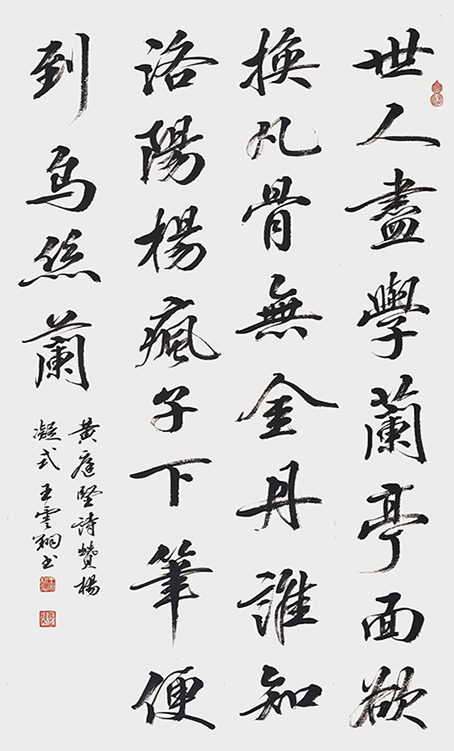 世人盡學蘭亭面欲
換凡骨無金丹誰知
洛陽楊瘋子下筆便
到烏絲蘭
黃庭堅詩贊楊
凝式王雲翔书